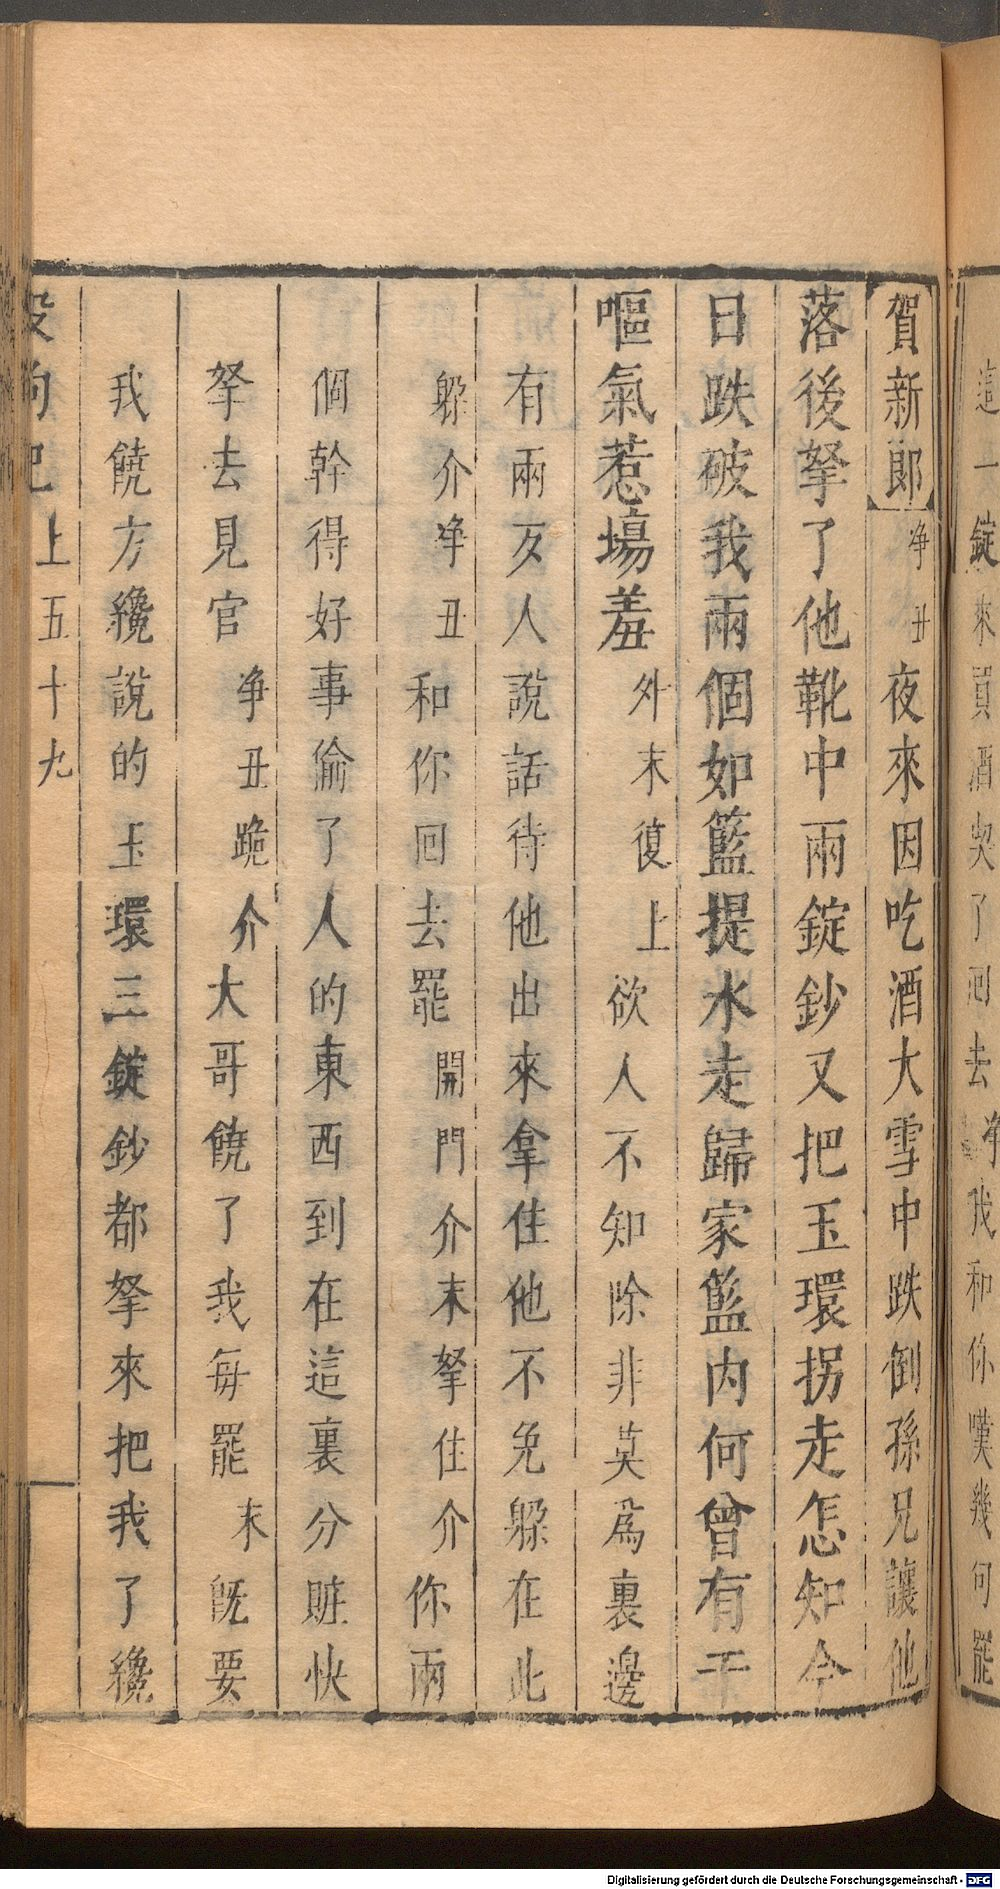 這一錠來買酒喫了回去淨我和你嘆幾句罷
賀新郎淨丑夜來因吃酒大雪中跌倒孫兄讓他
落後拏了他靴中兩錠鈔又把玉環拐走怎知今
日跌破我兩個如籃提水走歸家籃內何曾有干
嘔氣惹場羞外末復上欲人不知除非莫爲裏邊
有兩友人說話待他出來拿住他不免躱在此
躱介淨丑和你回去罷開門介末拏住介你兩
個幹得好事偷了人的東西到在這裏分賍快
拏去見官淨丑跪介大哥饒了我每罷末旣要
我饒方纔說的玉環三錠鈔都拏來把我了纔
殺狗記上五十九
Digitalisierung gefördert durch die Deutsche Forschungsgemeinschaft - DFG